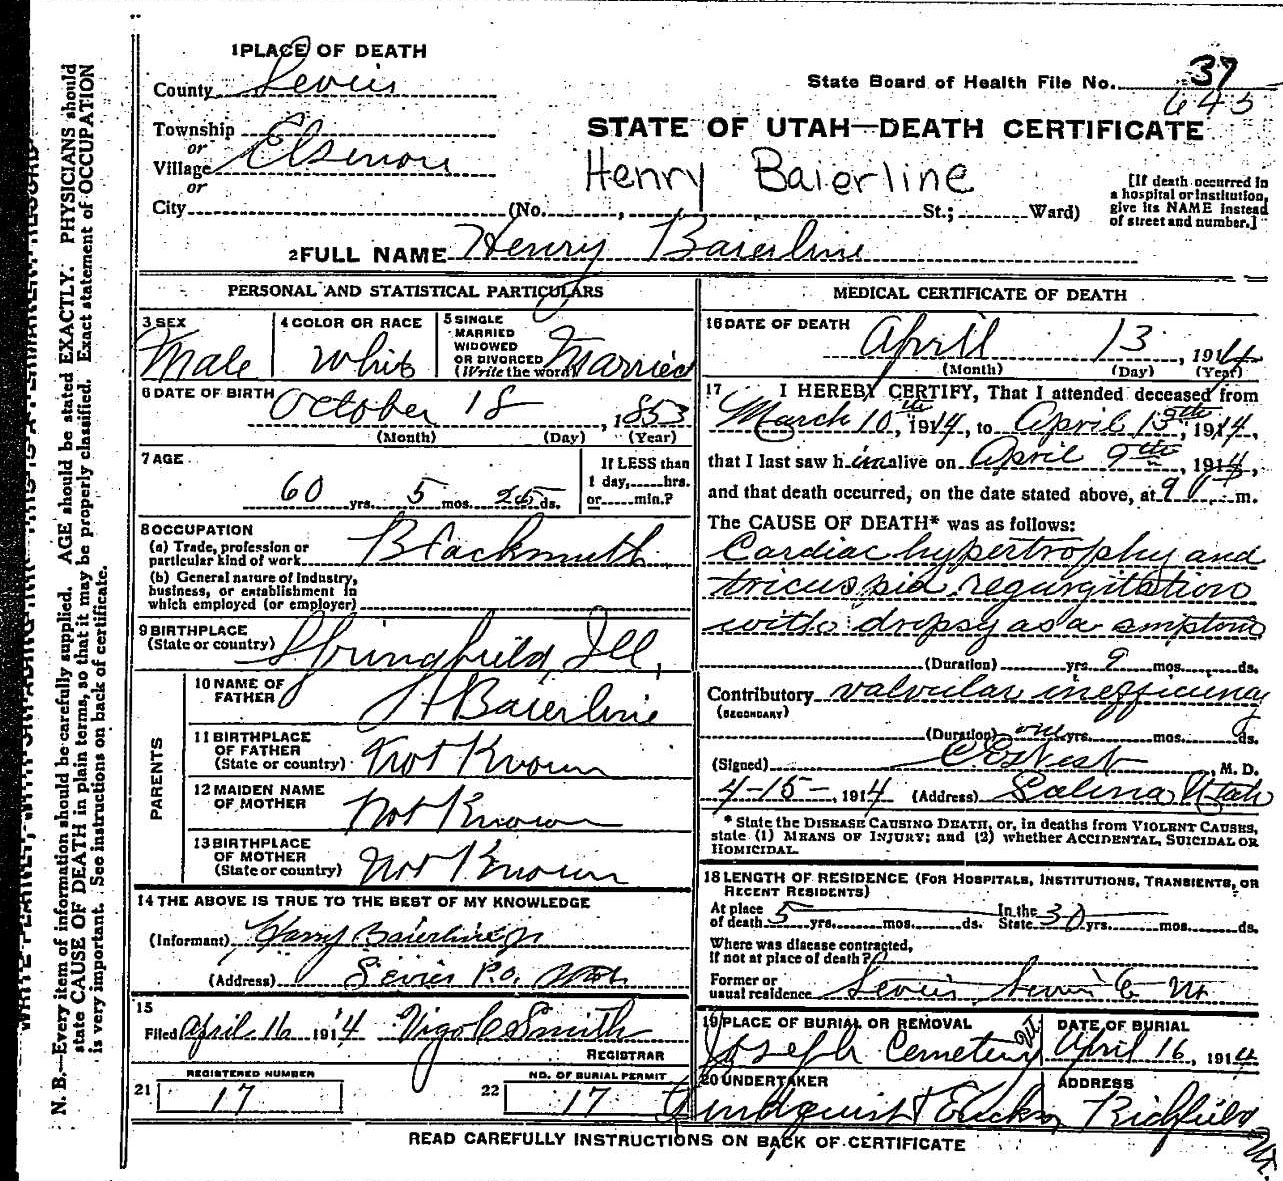 1 PLACE OF DEATH
County Sevier
Township
or
Village Elsinore
or
City (No. , St.; Ward)
State Board of Health File No. 37
645
STATE OF UTAH—DEATH CERTIFICATE
Henry Baierline
[If death occurred in
a hospital or institution,
give its NAME instead
of street and number.]
2 FULL NAME Henry Baierline
PERSONAL AND STATISTICAL PARTICULARS
3 SEX
Male
4 COLOR OR RACE
White
5 SINGLE
MARRIED
WIDOWED
OR DIVORCED
(Write the word)
Married
6 DATE OF BIRTH
October 18, 1853
(Month) (Day) (Year)
7 AGE
60 yrs. 5 mos. 25 ds.
If LESS than
1 day, hrs.
or min.?
8 OCCUPATION
(a) Trade, profession or
particular kind of work Blacksmith
(b) General nature of Industry,
business, or establishment in
which employed (or employer)
9 BIRTHPLACE
(State or country) Springfield, Ill,
PARENTS
10 NAME OF
FATHER Baierline
11 BIRTHPLACE
OF FATHER
(State or country) Not Known
12 MAIDEN NAME
OF MOTHER Not Known
13 BIRTHPLACE
OF MOTHER
(State or country) Not Known
14 THE ABOVE IS TRUE TO THE BEST OF MY KNOWLEDGE
(Informant) Harry Baierline Jr
(Address) Sevier P.O. Utah
15
Filed April 16 1914 Vigo C Smith
REGISTRAR
21 REGISTERED NUMBER
17
22 NO. OF BURIAL PERMIT
17
MEDICAL CERTIFICATE OF DEATH
16 DATE OF DEATH
April 13, 1914
(Month) (Day) (Year)
17 I HEREBY CERTIFY, That I attended deceased from
March 10th, 1914, to April 13th, 1914,
that I last saw him alive on April 9th, 1914,
and that death occurred, on the date stated above, at 9 m.
The CAUSE OF DEATH* was as follows:
Cardiac hypertrophy and
tricuspid regurgitation
with dropsy as a smptom
(Duration) yrs. 9 mos. ds.
Contributory valvular inefficiency
(SECONDARY)
(Duration) one yrs. mos. ds.
(Signed) West, M. D.
4-15-, 1914 (Address) Salina Utah
* State the DISEASE CAUSING DEATH, or, in deaths from VIOLENT CAUSES,
state (1) MEANS OF INJURY; and (2) whether ACCIDENTAL, SUICIDAL OR
HOMICIDAL.
18 LENGTH OF RESIDENCE (FOR HOSPITALS, INSTITUTIONS, TRANSIENTS, OR
RECENT RESIDENTS)
At place
of death 5 yrs. mos. ds.
In the
State 30 yrs. mos. ds.
Where was disease contracted,
if not at place of death?
Former or
usual residence Sevier, Sevier Co Ut.
19 PLACE OF BURIAL OR REMOVAL
Joseph Cemetery Ut.
DATE OF BURIAL
April 16, 1914
20 UNDERTAKER
ADDRESS
Richfield Ut.
READ CAREFULLY INSTRUCTIONS ON BACK OF CERTIFICATE
N. B.—Every item of information should be carefully supplied. AGE should be stated EXACTLY. PHYSICIANS should
state CAUSE OF DEATH in plain terms, so that it may be properly classified. Exact statement of OCCUPATION
is very important. See instructions on back of certificate.